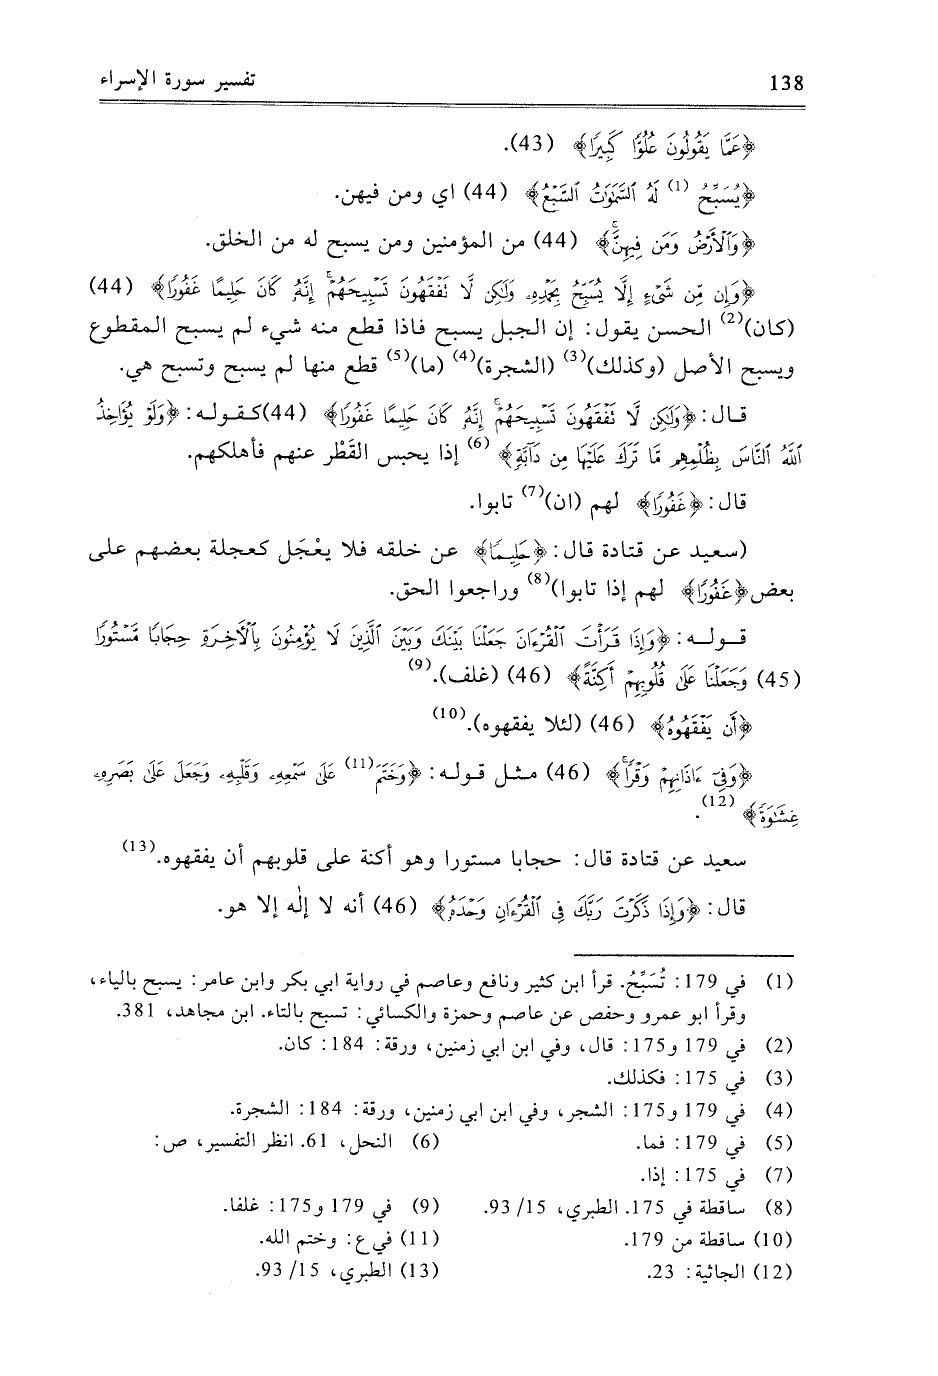 138 تفسير سورة الإسراء
﴿عَمَّا يَقُولُونَ عُلُوًّا كَبِيرًا﴾ (43).
﴿يُسَبِّحُ (1) لَهُ ٱلسَّمَٰوَٰتُ ٱلسَّبْعُ﴾ (44) اي ومن فيهن.
﴿وَٱلْأَرْضُ وَمَن فِيهِنَّۚ﴾ (44) من المؤمنين ومن يسبح له من الخلق.
﴿وَإِن مِّن شَىْءٍ إِلَّا يُسَبِّحُ بِحَمْدِهِۦ وَلَٰكِن لَّا نَفْقَهُونَ تَسْبِيحَهُمْۚ إِنَّهُۥ كَانَ حَلِيمًا غَفُورًا﴾ (44)
(كان)(2) الحسن يقول: إن الجبل يسبح فاذا قطع منه شيء لم يسبح المقطوع
ويسبح الأصل (وكذلك)(3) (الشجرة)(4) (ما)(5) قطع منها لم يسبح وتسبح هي.
قال: ﴿وَلَٰكِن لَّا نَفْقَهُونَ تَسْبِيحَهُمْۚ إِنَّهُۥ كَانَ حَلِيمًا غَفُورًا﴾ (44)كقوله: ﴿وَلَوْ يُؤَاخِذُ
ٱللَّهُ ٱلنَّاسَ بِظُلْمِهِم مَّا تَرَكَ عَلَيْهَا مِن دَآبَّةٍ﴾ (6) إذا يحبس القَطْر عنهم فأهلكهم.
قال: ﴿غَفُورًا﴾ لهم (ان)(7) تابوا.
(سعيد عن قتادة قال: ﴿حَلِيمًا﴾ عن خلقه فلا يعْجَل كعجلة بعضهم على
بعض ﴿غَفُورًا﴾ لهم إذا تابوا)(8) وراجعوا الحق.
قوله: ﴿وَإِذَا قَرَأْتَ ٱلْقُرْءَانَ جَعَلْنَا بَيْنَكَ وَبَيْنَ ٱلَّذِينَ لَا يُؤْمِنُونَ بِٱلْأَخِرَةِ حِجَابًا مَّسْتُورًا
(45) وَجَعَلْنَا عَلَىٰ قُلُوبِهِمْ أَكِنَّةً﴾ (46) (غلف).(9)
﴿أَن يَفْقَهُوهُ﴾ (46) (لئلا يفقهوه).(10)
﴿وَفِىٓ ءَاذَانِهِمْ وَقْرًاۚ﴾ (46) مثل قوله: ﴿وَخَتَمَ(11) عَلَىٰ سَمْعِهِۦ وَقَلْبِهِۦ وَجَعَلَ عَلَىٰ بَصَرِهِۦ
غِشَٰوَةً﴾ (12).
سعيد عن قتادة قال: حجابا مستورا وهو أكنة على قلوبهم أن يفقهوه.(13)
قال: ﴿وَإِذَا ذَكَرْتَ رَبَّكَ فِى ٱلْقُرْءَانِ وَحْدَهُۥ﴾ (46) أنه لا إلٰه إلا هو.
(1) في 179: تُسَبِّحُ. قرأ ابن كثير ونافع وعاصم في رواية ابي بكر وابن عامر: يسبح بالياء،
وقرأ ابو عمرو وحفص عن عاصم وحمزة والكسائي: تسبح بالتاء. ابن مجاهد، 381.
(2) في 179 و175: قال، وفي ابن ابي زمنين، ورقة: 184: كان.
(3) في 175: فكذلك.
(4) في 179 و175: الشجر، وفي ابن ابي زمنين، ورقة: 184: الشجرة.
(5) في 179: فما. (6) النحل، 61. انظر التفسير، ص:
(7) في 175: إذا.
(8) ساقطة في 175. الطبري، 15/ 93. (9) في 179 و175: غلفا.
(10) ساقطة من 179. (11) في ع: وختم الله.
(12) الجاثية: 23. (13) الطبري، 15/ 93.